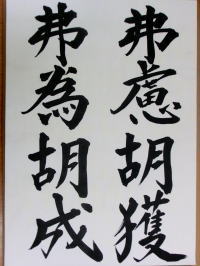 弗慮胡獲
弗為胡成